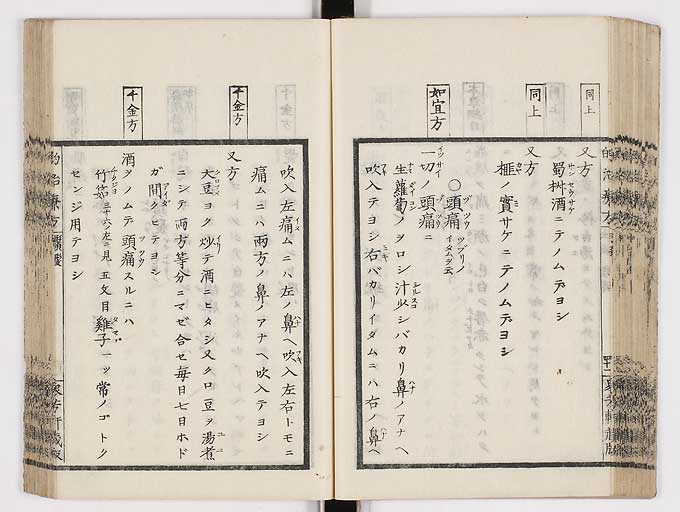 同上
又方
蜀椒酒ニテノムテヨシ
同上
又方
榧ノ實サケニテノムテヨシ
○頭痛
如宜方
一切ノ頭痛ニ
生蘿蔔ノヲロシ汁少シバカリ鼻ノアナヘ
吹入テヨシ右バカリイダムニハ右ノ鼻ヘ
吹入左痛ムニハ左ノ鼻ヘ吹入左右トモニ
痛ムニハ兩方ノ鼻ノアナヘ吹入テヨシ
千金方
又方
大豆ヨク炒テ酒ニヒタシ又クロ豆ヲ湯煮
ニシテ兩方等分ニマゼ合セ毎日七日ホド
ガ間クヒテヨシ
千金方
酒ヲノムテ頭痛スルニハ
竹筎三十六左ニ見五文目雞子一ツ常ノゴトク
センジ用テヨシ